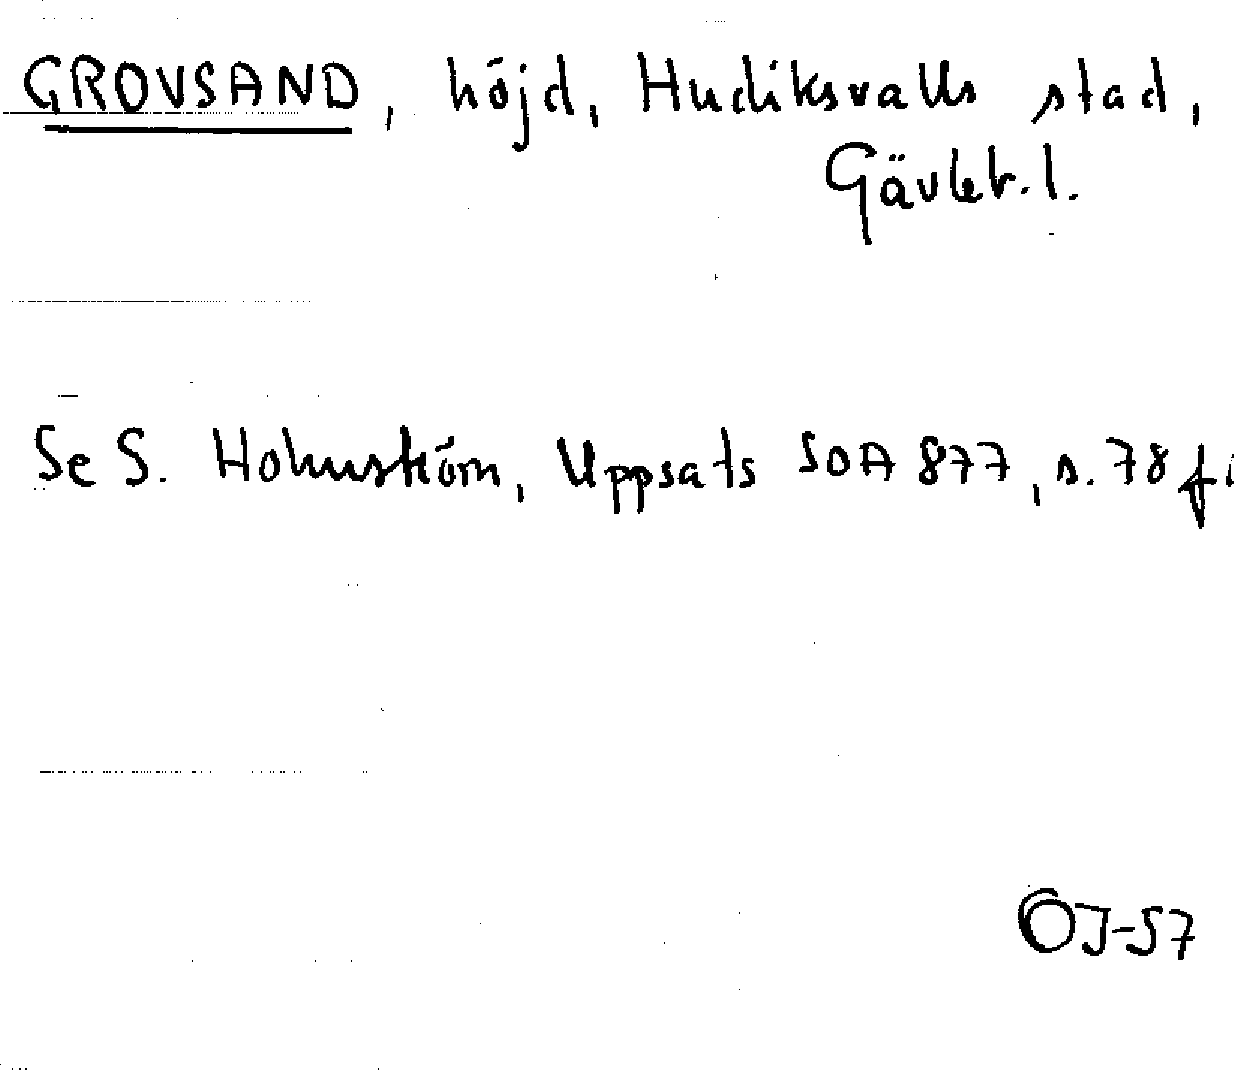 GROVSAND, höjd, Hudiksvalls stad,
Gävleb. l.
Se S. Holmström, Uppsats SOA 877, s. 78 f